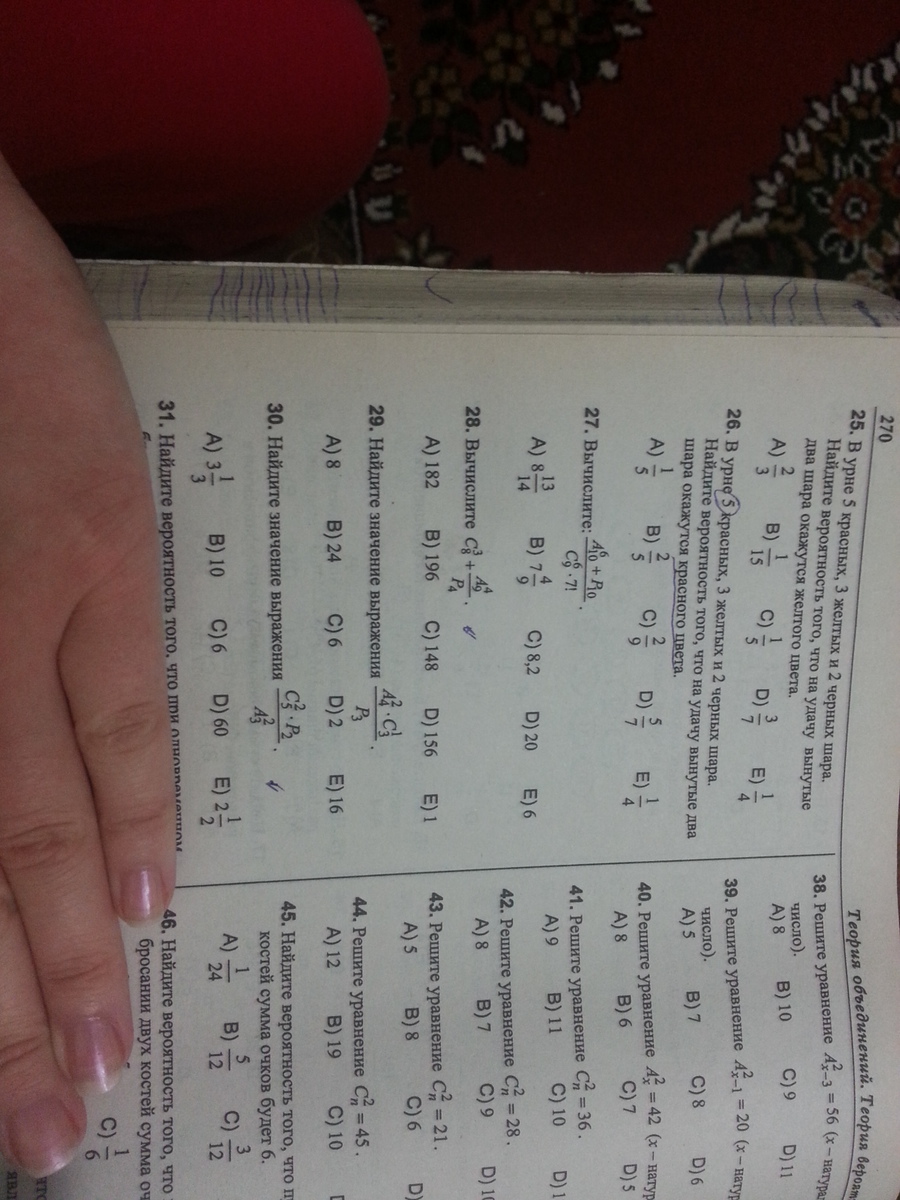 270
Теория объединений. Теория вероят
25. В урне 5 красных, 3 желтых и 2 черных шара.
Найдите вероятность того, что на удачу вынутые
два шара окажутся желтого цвета.
A) 2/3 B) 1/15 C) 1/5 D) 3/7 E) 1/4
26. В урне 5 красных, 3 желтых и 2 черных шара.
Найдите вероятность того, что на удачу вынутые два
шара окажутся красного цвета.
A) 1/5 B) 2/5 C) 2/9 D) 5/7 E) 1/4
27. Вычислите: (A_10^6 + P_10)/(C_9^6 · 7!).
A) 8 13/14 B) 7 4/9 C) 8,2 D) 20 E) 6
28. Вычислите C_8^3 + A_9^4/P_4.
A) 182 B) 196 C) 148 D) 156 E) 1
29. Найдите значение выражения (A_4^2 · C_3^1)/P_3.
A) 8 B) 24 C) 6 D) 2 E) 16
30. Найдите значение выражения (C_5^2 · P_2)/A_3^2.
A) 3 1/3 B) 10 C) 6 D) 60 E) 2 1/2
31. Найдите вероятность того, что при одновременном
38. Решите уравнение A_{x-3}^2 = 56 (x – натур
число).
A) 8 B) 10 C) 9 D) 11
39. Решите уравнение A_{x-1}^2 = 20 (x – нату
число).
A) 5 B) 7 C) 8 D) 6
40. Решите уравнение A_x^2 = 42 (x – натур
A) 8 B) 6 C) 7 D) 5
41. Решите уравнение C_n^2 = 36.
A) 9 B) 11 C) 10 D) 1
42. Решите уравнение C_n^2 = 28.
A) 8 B) 7 C) 9 D) 10
43. Решите уравнение C_n^2 = 21.
A) 5 B) 8 C) 6 D)
44. Решите уравнение C_n^2 = 45.
A) 12 B) 19 C) 10
45. Найдите вероятность того, что п
костей сумма очков будет 6.
A) 1/24 B) 5/12 C) 3/12
46. Найдите вероятность того, что
бросании двух костей сумма оч
C) 1/6